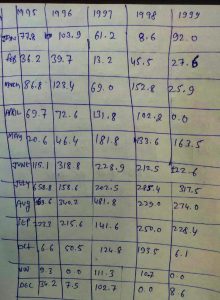 1995 1996 1997 1998 1999
JAN 77.8 103.9 61.2 8.6 92.0
feb 36.2 39.7 13.2 45.5 27.6
March 86.8 123.4 69.0 152.8 25.9
APRIL 69.7 72.6 131.8 102.8 0.0
May 20.6 46.4 181.8 133.6 163.5
JUNE 115.1 318.8 228.9 212.5 122.6
JULY 658.8 158.6 202.5 285.4 317.5
Aug 340.2 481.8 229.0 274.0
SEP 223.3 215.6 141.6 250.0 228.4
OCT 6.6 50.5 124.8 193.5 6.1
NOV 9.3 0.0 111.3 10.7 0.0
DEC 34.2 7.5 102.7 0.0 8.6